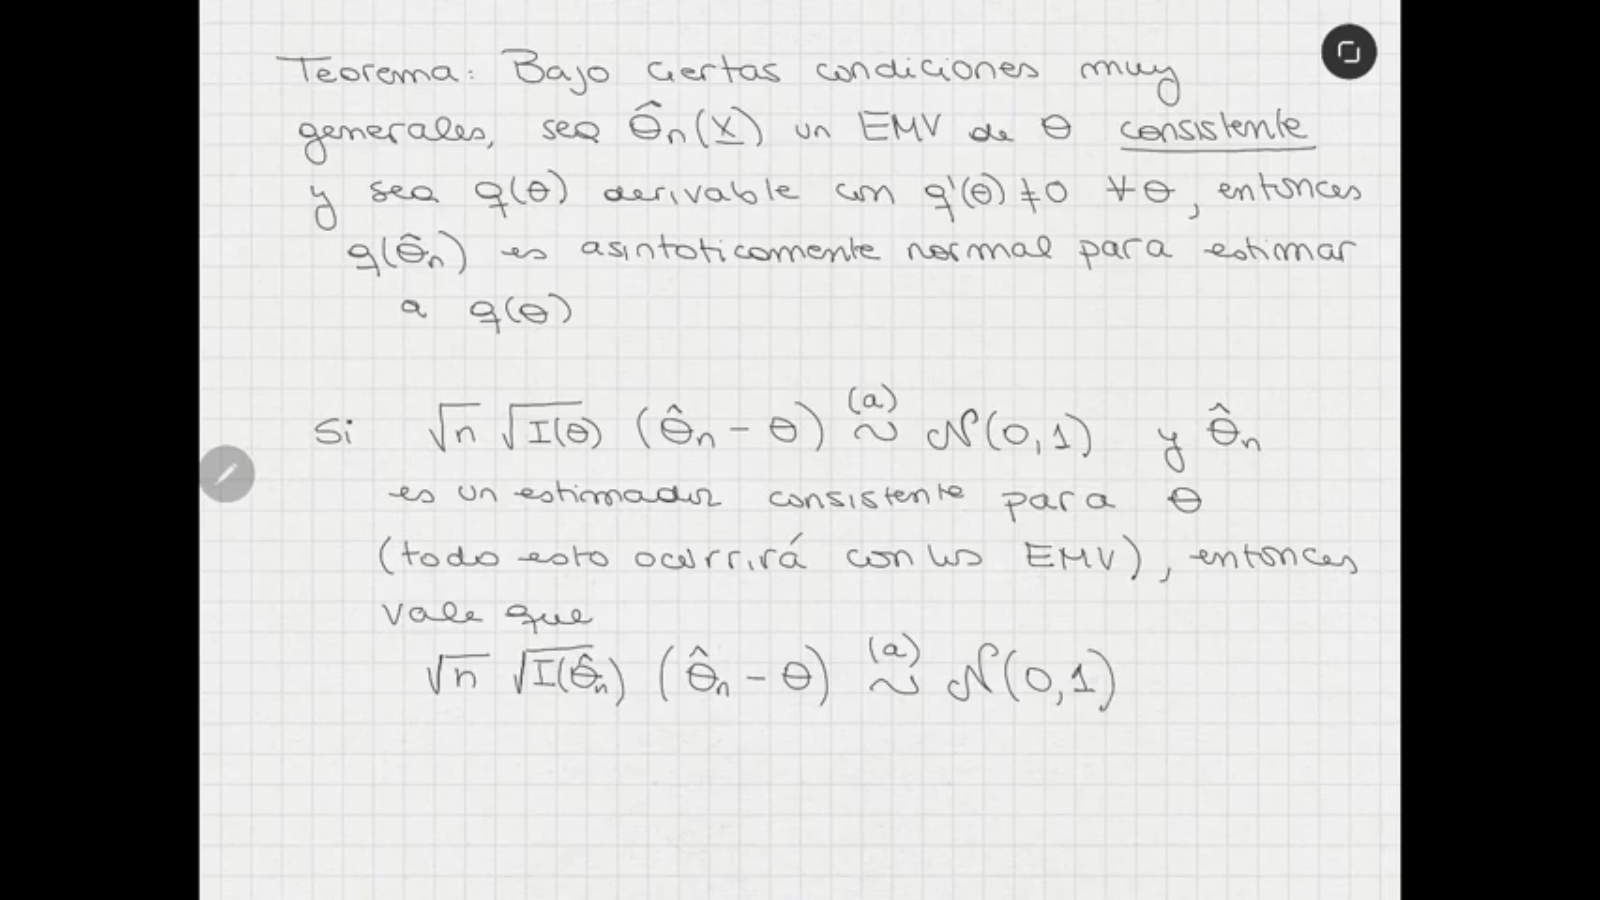 Teorema: Bajo ciertas condiciones muy
generales, sea θ̂n(X) un EMV de θ consistente
y sea q(θ) derivable con q'(θ) ≠ 0 ∀θ, entonces
q(θ̂n) es asintoticamente normal para estimar
a q(θ)
Si √n √I(θ) (θ̂n - θ) (a)~ N(0,1) y θ̂n
es un estimador consistente para θ
(todo esto ocurrirá con los EMV), entonces
vale que
√n √I(θ̂n) (θ̂n - θ) (a)~ N(0,1)